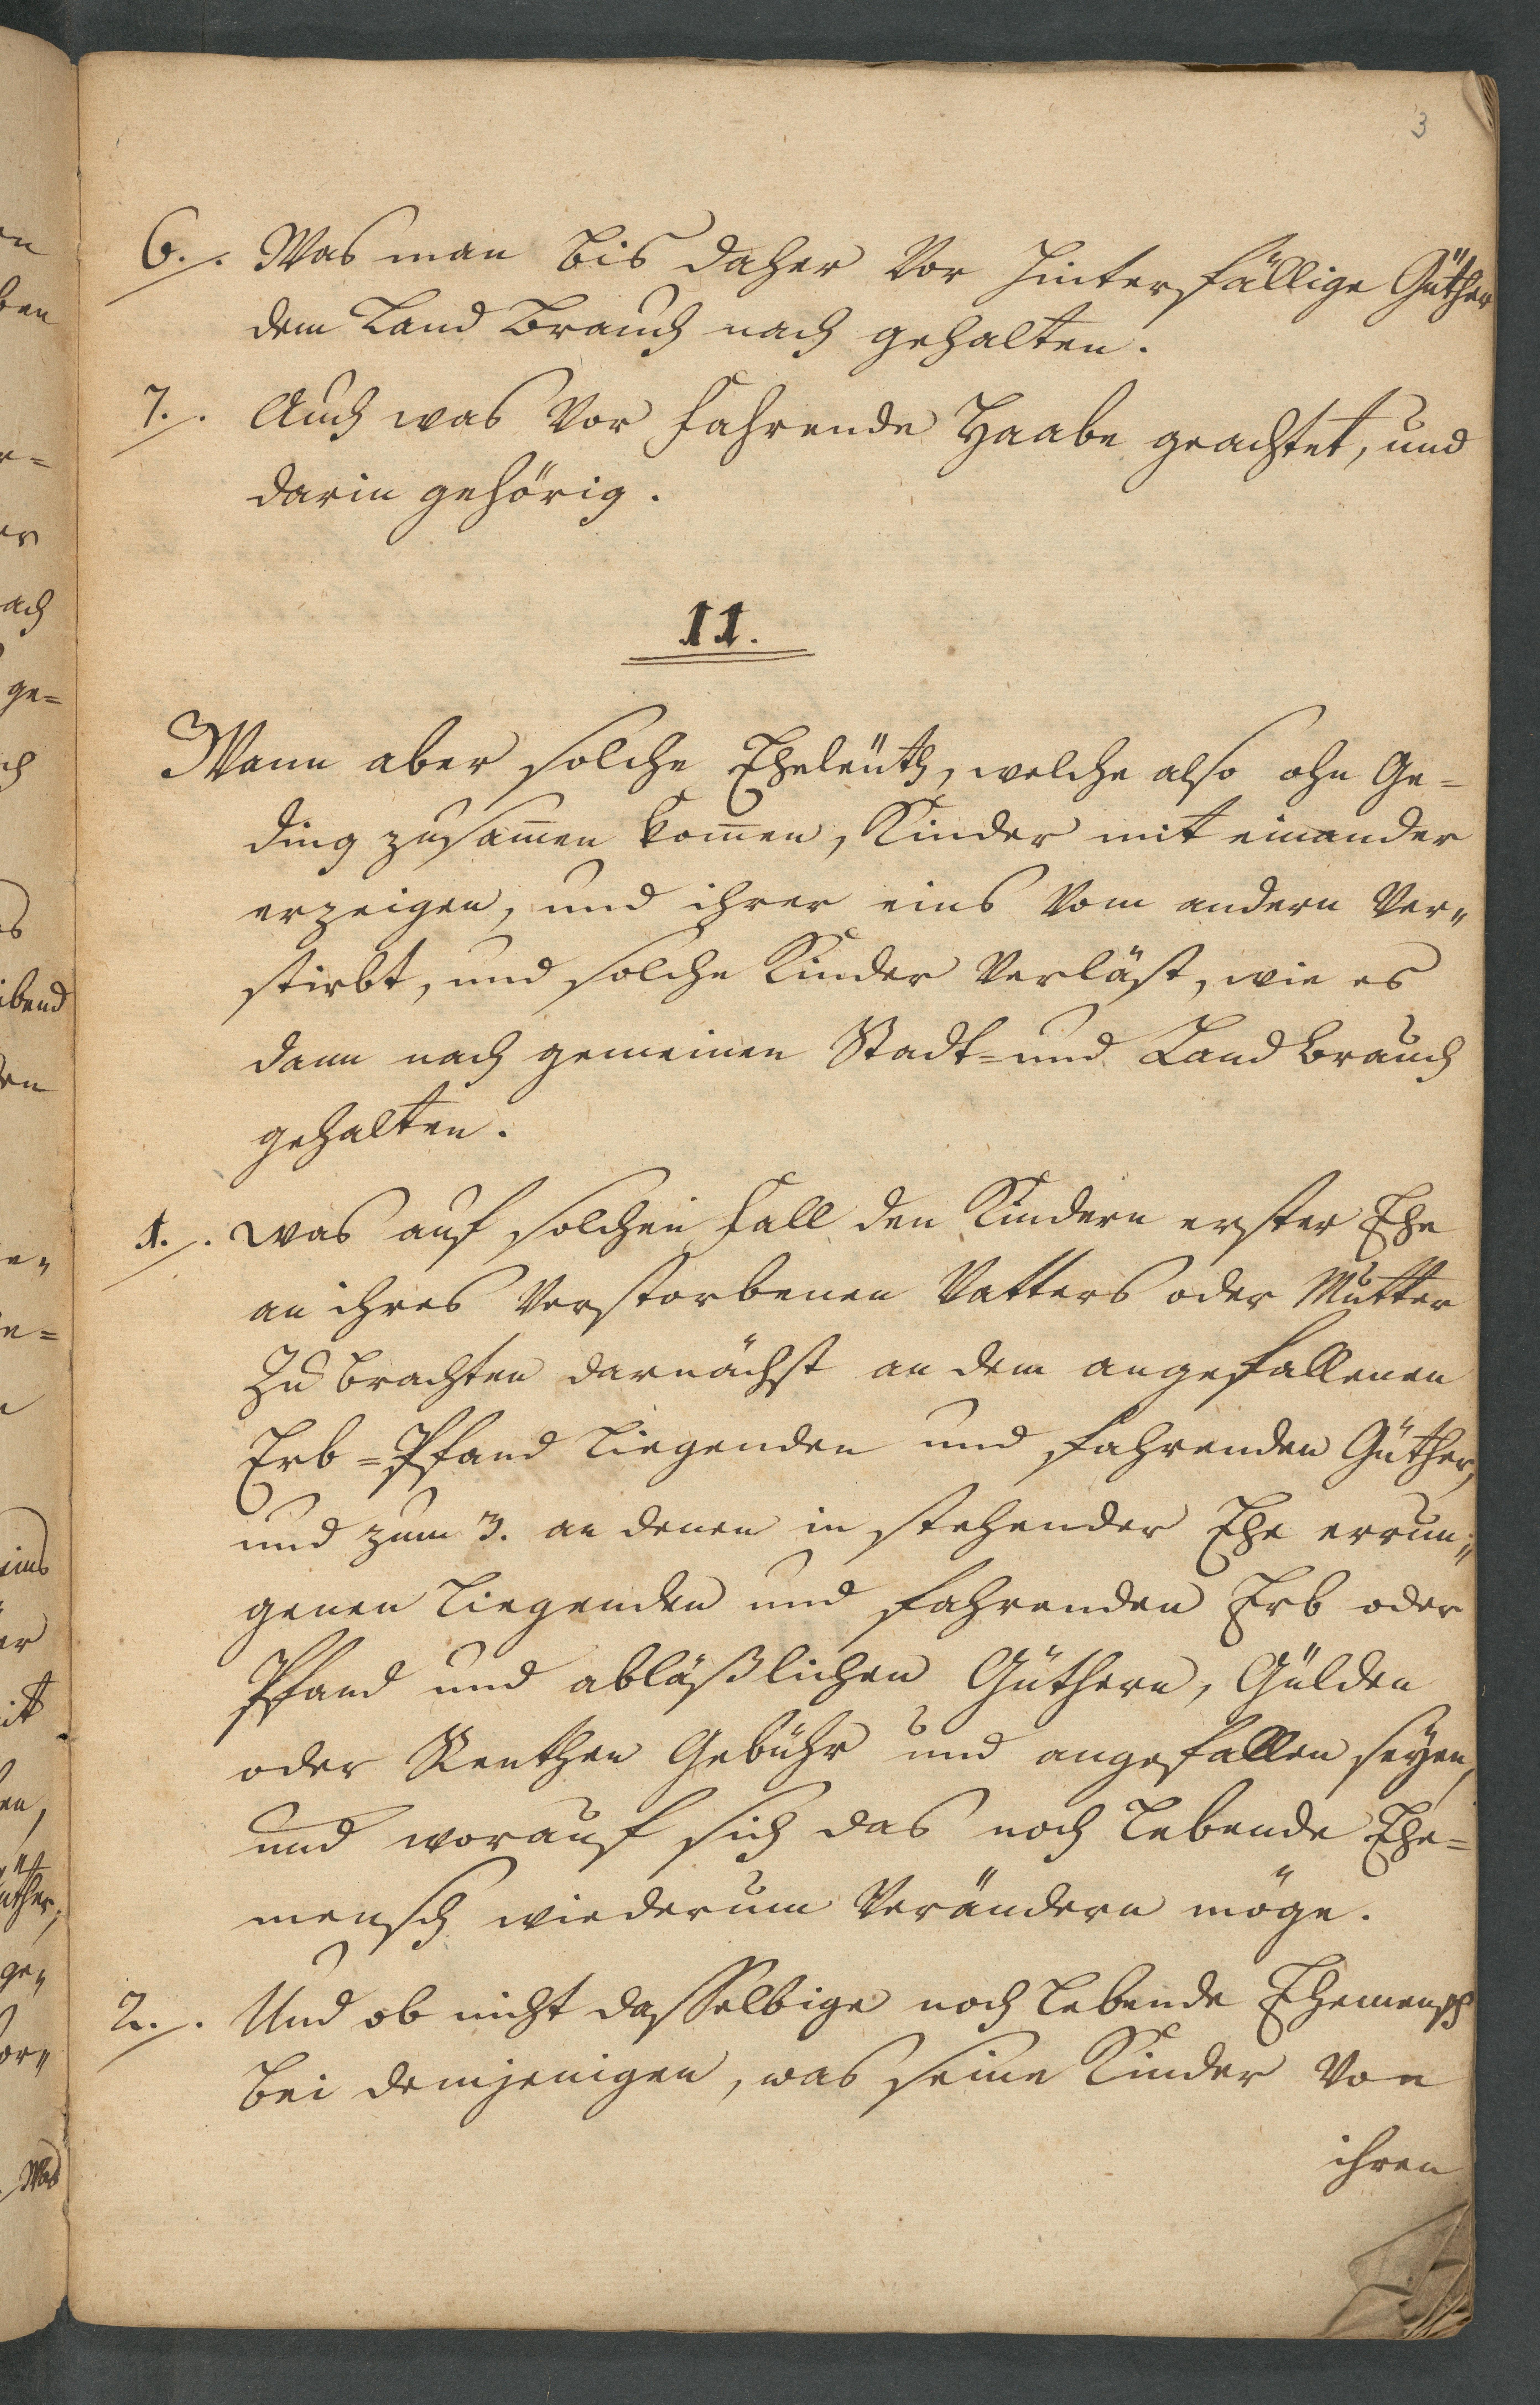 3
6./. Was man bis daher vor hinterfällige Güther
dem Land Brauch nach gehalten.
7./. Auch was vor fahrende Haabe geachtet, und
darin gehörig.
II.
Wann aber solche Eheleüth, welche also ohn Ge=
ding zusam̄en kom̄en, Kinder mit einander
erzeigen, und ihrer eins vom andern ver„
stirbt, und solche Kinder verläst, wie es
dann nach gemeinen Stadt= und Land brauch
gehalten.
1./. was auf solchen fall den Kindern erster Ehe
an ihres verstorbenen Vatters oder Mutter
Zu brachten darnächst an dem angefallenen
Erb=Pfand liegenden und fahrenden Güther,
und zum 3. an denen in stehender Ehe errun„
genen liegenden und fahrenden Erb oder
Pfand und abläßlichen Güthern, Gülden
oder Renthen Gebühr und angefallen seyen,
und worauf sich das noch lebende Ehe=
mensch wiederum verändern möge.
2./. Und ob nicht dasselbige noch lebende Ehemensch
bei demjenigen, was seine Kinder von
ihren